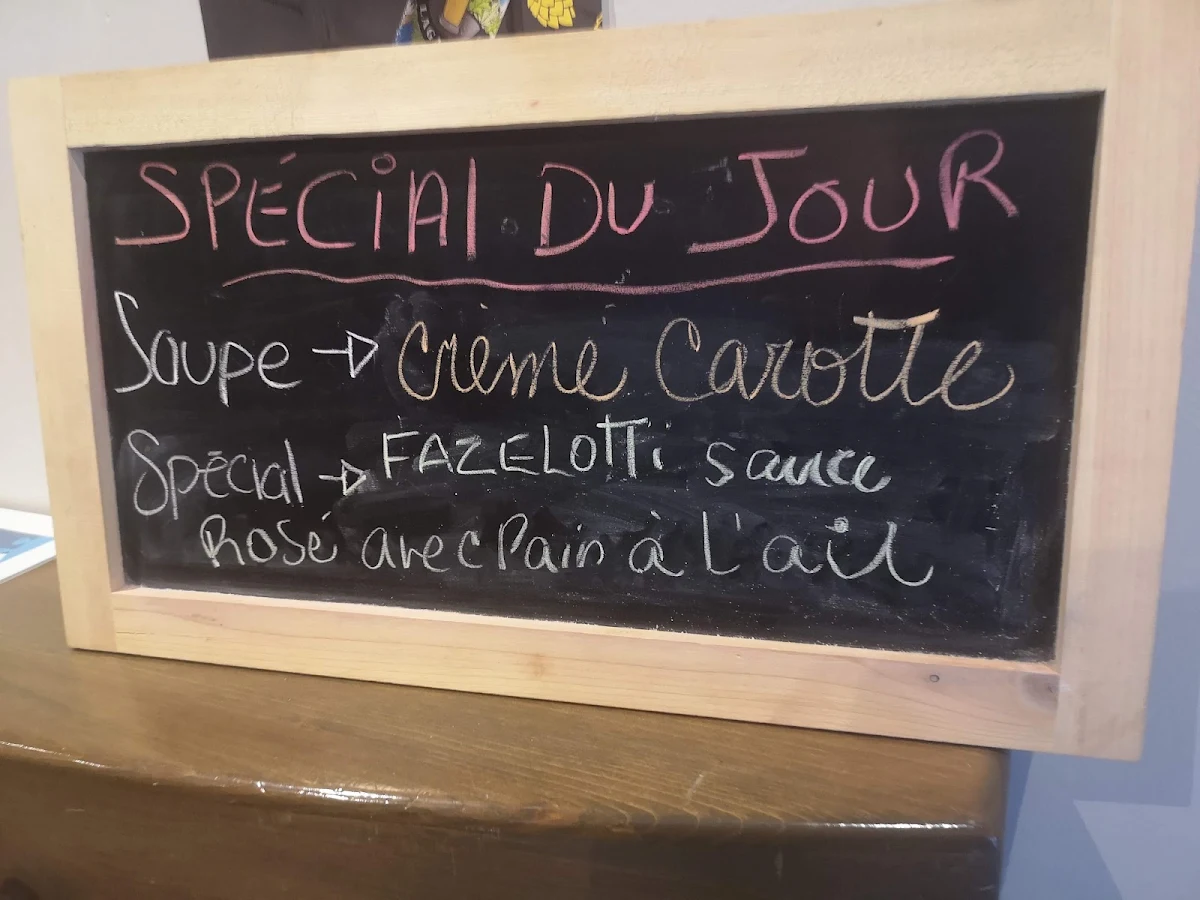 SPÉCIAL DU JOUR
Soupe → Crème Carotte
Spécial → FAZELOTTi sauce
Rosé avec Pain à L'ail